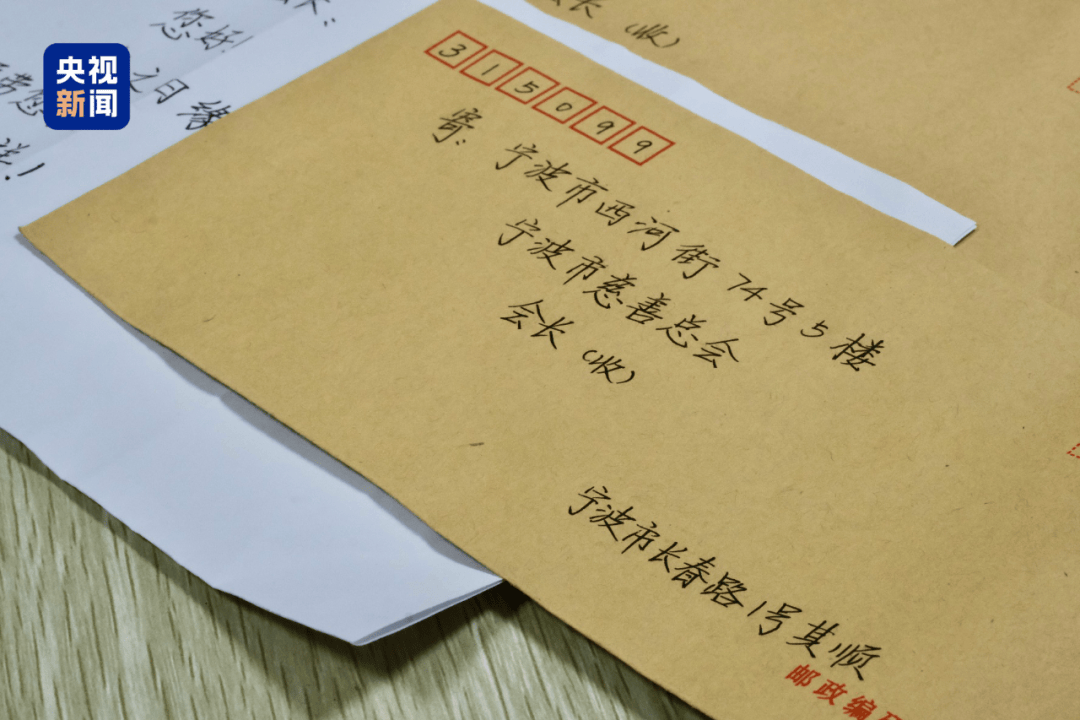 央视
新闻
您好!
之日
会长(收)
315099
寄:
宁波市西河街74号5楼
宁波市慈善总会
会长(收)
宁波市长春路1号其顺
邮政编码